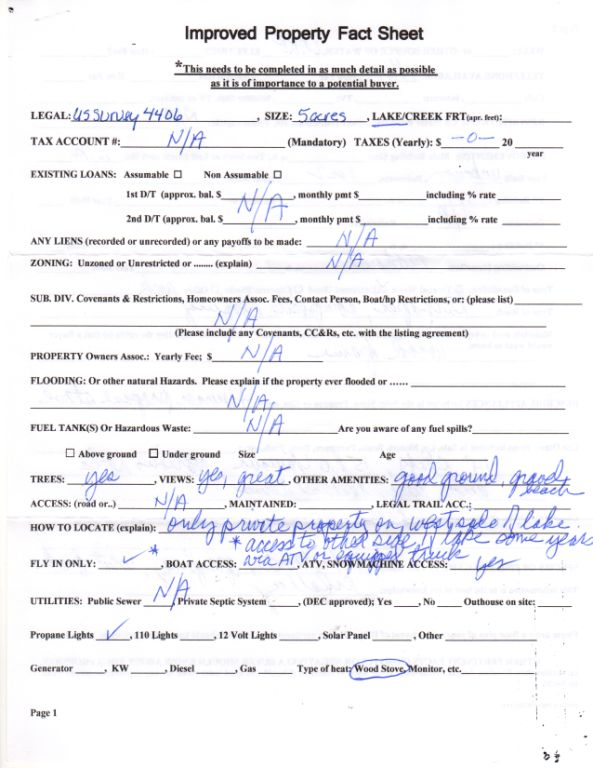 Improved Property Fact Sheet
*This needs to be completed in as much detail as possible
as it is of importance to a potential buyer.
LEGAL: US Survey 4406, SIZE: 5 acres, LAKE/CREEK FRT(apr. feet):
TAX ACCOUNT #: N/A (Mandatory) TAXES (Yearly): $ -0- 20
year
EXISTING LOANS: Assumable ☐ Non Assumable ☐
1st D/T (approx. bal. $, monthly pmt $ including % rate
N/A
2nd D/T (approx. bal. $, monthly pmt $ including % rate
ANY LIENS (recorded or unrecorded) or any payoffs to be made: N/A
ZONING: Unzoned or Unrestricted or ....... (explain) N/A
SUB. DIV. Covenants & Restrictions, Homeowners Assoc. Fees, Contact Person, Boat/hp Restrictions, or: (please list)
N/A
(Please include any Covenants, CC&Rs, etc. with the listing agreement)
PROPERTY Owners Assoc.: Yearly Fee; $ N/A
FLOODING: Or other natural Hazards. Please explain if the property ever flooded or ......
N/A
FUEL TANK(S) Or Hazardous Waste: N/A Are you aware of any fuel spills?
☐ Above ground ☐ Under ground Size Age
TREES: yes, VIEWS: yes, great, OTHER AMENITIES: good ground, gravel
beach
ACCESS: (road or..) N/A, MAINTAINED:, LEGAL TRAIL ACC.:
HOW TO LOCATE (explain): only private property on west side of lake.
* access to other side of lake some years
via ATV or equipped truck
FLY IN ONLY: ✓ *, BOAT ACCESS:, ATV, SNOWMACHINE ACCESS: yes
UTILITIES: Public Sewer N/A, Private Septic System, (DEC approved); Yes, No Outhouse on site:
Propane Lights ✓, 110 Lights, 12 Volt Lights, Solar Panel, Other
Generator, KW, Diesel, Gas Type of heat: Wood Stove, Monitor, etc.
Page 1